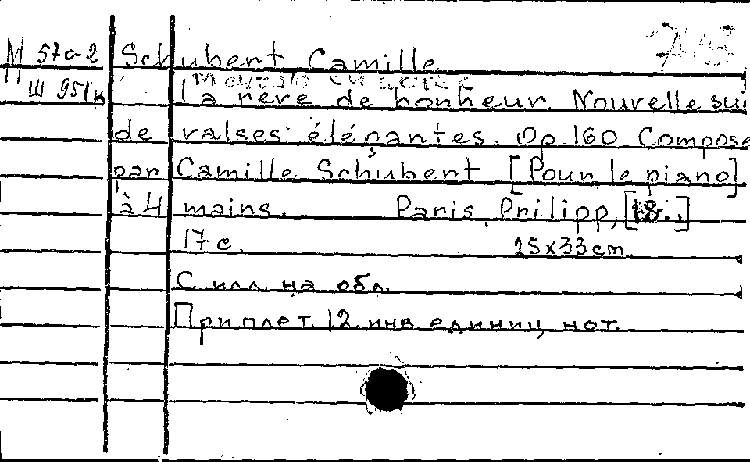 М 57а-2 Schubert Camille
Ш 951
La rêve de bonheur. Nouvelle sui
de valses élégantes. Op. 160 Compose
par Camille Schubert [Pour le piano]
à 4 mains. Paris, Prilipp, [18..]
17 с. 25x33cm
С илл. на обл.
Приплет. 12 инв. единиц нот.